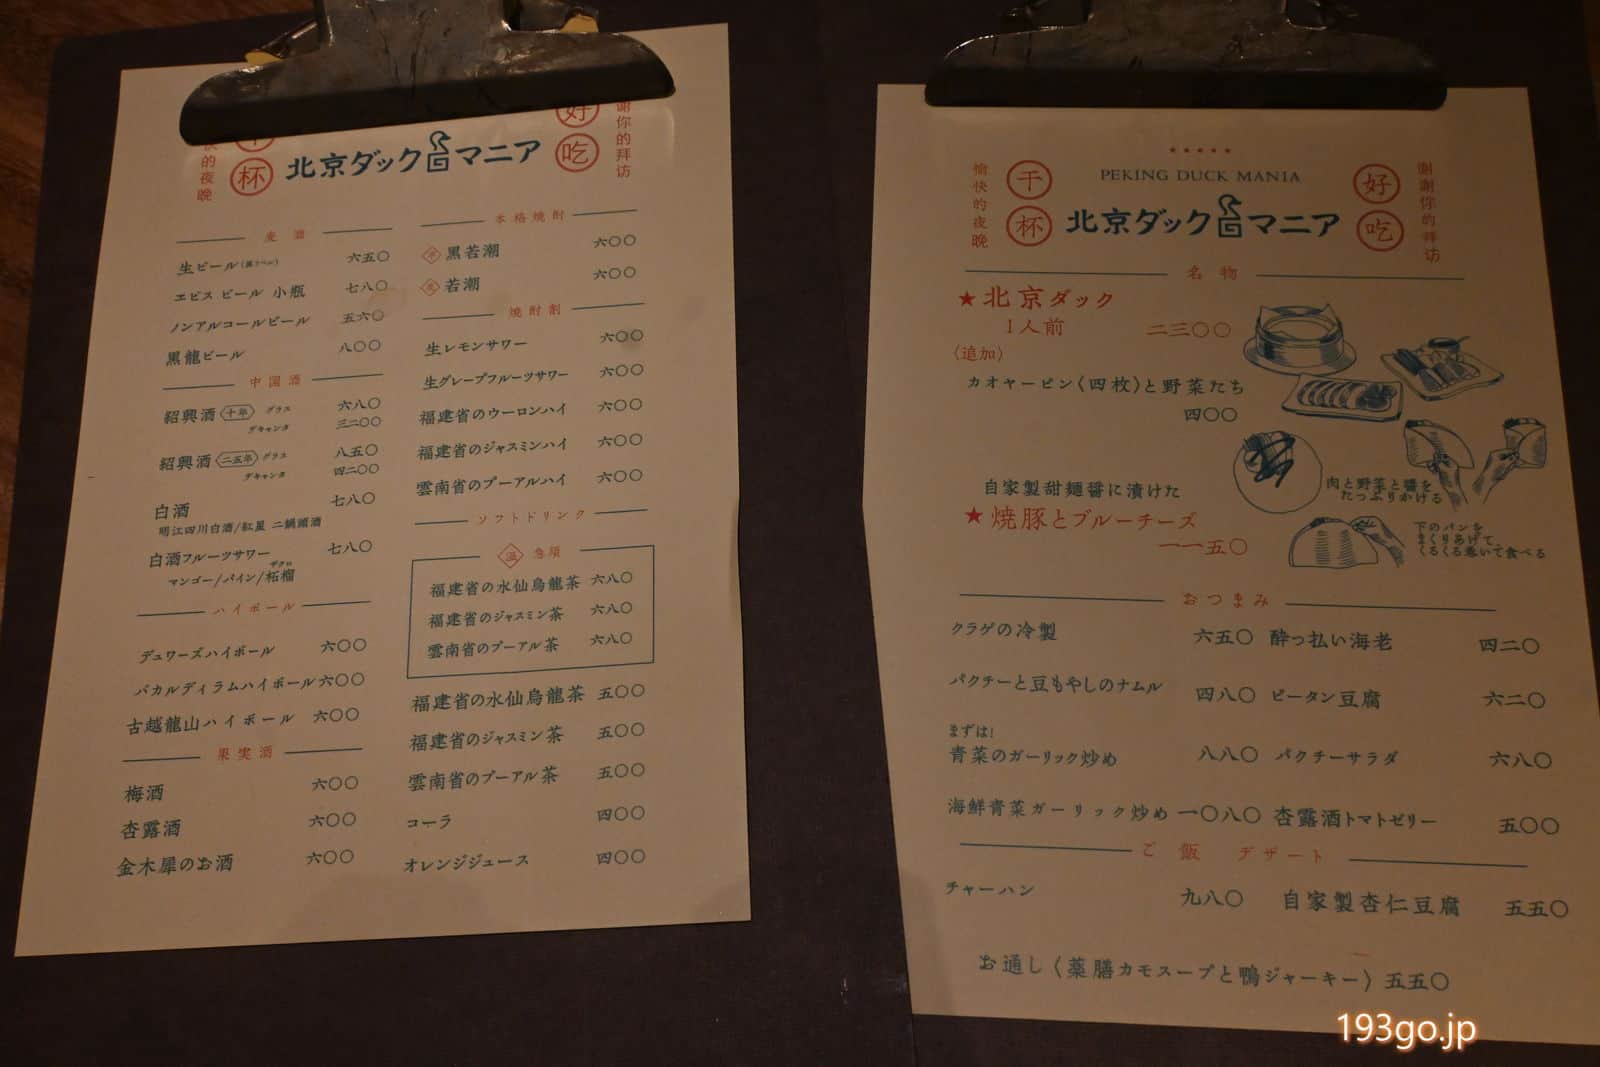 的夜晚
杯
北京ダック マニア
好吃
谢你的拜访
麦酒
生ビール 六五〇
ヱビス ビール 小瓶 七八〇
ノンアルコールビール 五六〇
黒龍ビール 八〇〇
中国酒
紹興酒〈十年〉 グラス 六八〇
デキャンタ 三二〇〇
紹興酒〈二五年〉 グラス 八五〇
デキャンタ 四二〇〇
白酒 七八〇
明江四川白酒/紅星 二鍋頭酒
白酒フルーツサワー 七八〇
ザクロ
マンゴー/パイン/柘榴
ハイボール
デュワーズハイボール 六〇〇
バカルディラムハイボール 六〇〇
古越龍山ハイボール 六〇〇
果実酒
梅酒 六〇〇
杏露酒 六〇〇
金木犀のお酒 六〇〇
本格焼酎
黒若潮 六〇〇
若潮 六〇〇
焼酎割
生レモンサワー 六〇〇
生グレープフルーツサワー 六〇〇
福建省のウーロンハイ 六〇〇
福建省のジャスミンハイ 六〇〇
雲南省のプーアルハイ 六〇〇
ソフトドリンク
温 急須
福建省の水仙烏龍茶 六八〇
福建省のジャスミン茶 六八〇
雲南省のプーアル茶 六八〇
福建省の水仙烏龍茶 五〇〇
福建省のジャスミン茶 五〇〇
雲南省のプーアル茶 五〇〇
コーラ 四〇〇
オレンジジュース 四〇〇
愉快的夜晚
干杯
PEKING DUCK MANIA
北京ダック マニア
好吃
谢谢你的拜访
名物
★北京ダック
1人前 二三〇〇
〈追加〉
カオヤーピン〈四枚〉と野菜たち
四〇〇
自家製甜麺醤に漬けた
★焼豚とブルーチーズ
一一五〇
肉と野菜と醬を
たっぷりかける
下のパンを
まくりあげて、
くるくる巻いて食べる
おつまみ
クラゲの冷製 六五〇
酔っ払い海老 四二〇
パクチーと豆もやしのナムル 四八〇
ピータン豆腐 六二〇
まずは!
青菜のガーリック炒め 八八〇
パクチーサラダ 六八〇
海鮮青菜ガーリック炒め 一〇八〇
杏露酒トマトゼリー 五〇〇
ご飯 デザート
チャーハン 九八〇
自家製杏仁豆腐 五五〇
お通し〈薬膳カモスープと鴨ジャーキー〉五五〇
193go.jp